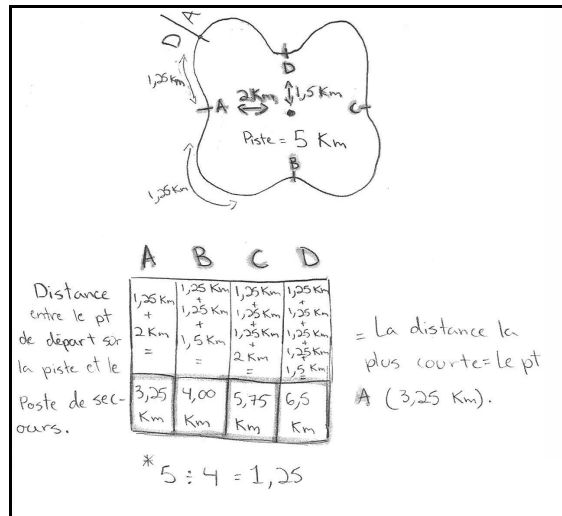 D A
1,25 Km
D
A 2 Km 1,5 Km C
Piste = 5 Km
B
1,25 Km
A B C D
Distance
entre le pt
de départ sur
la piste et le
Poste de sec-
ours.
1,25 Km
+
2 Km
=
3,25
Km
1,25 Km
+
1,25 Km
+
1,5 Km
=
4,00
Km
1,25 Km
+
1,25 Km
+
1,25 Km
+
2 Km
=
5,75
Km
1,25 Km
+
1,25 Km
+
1,25 Km
+
1,25 Km
+
1,5 Km
=
6,5
Km
= La distance la
plus courte = Le pt
A (3,25 Km).
* 5 ÷ 4 = 1,25